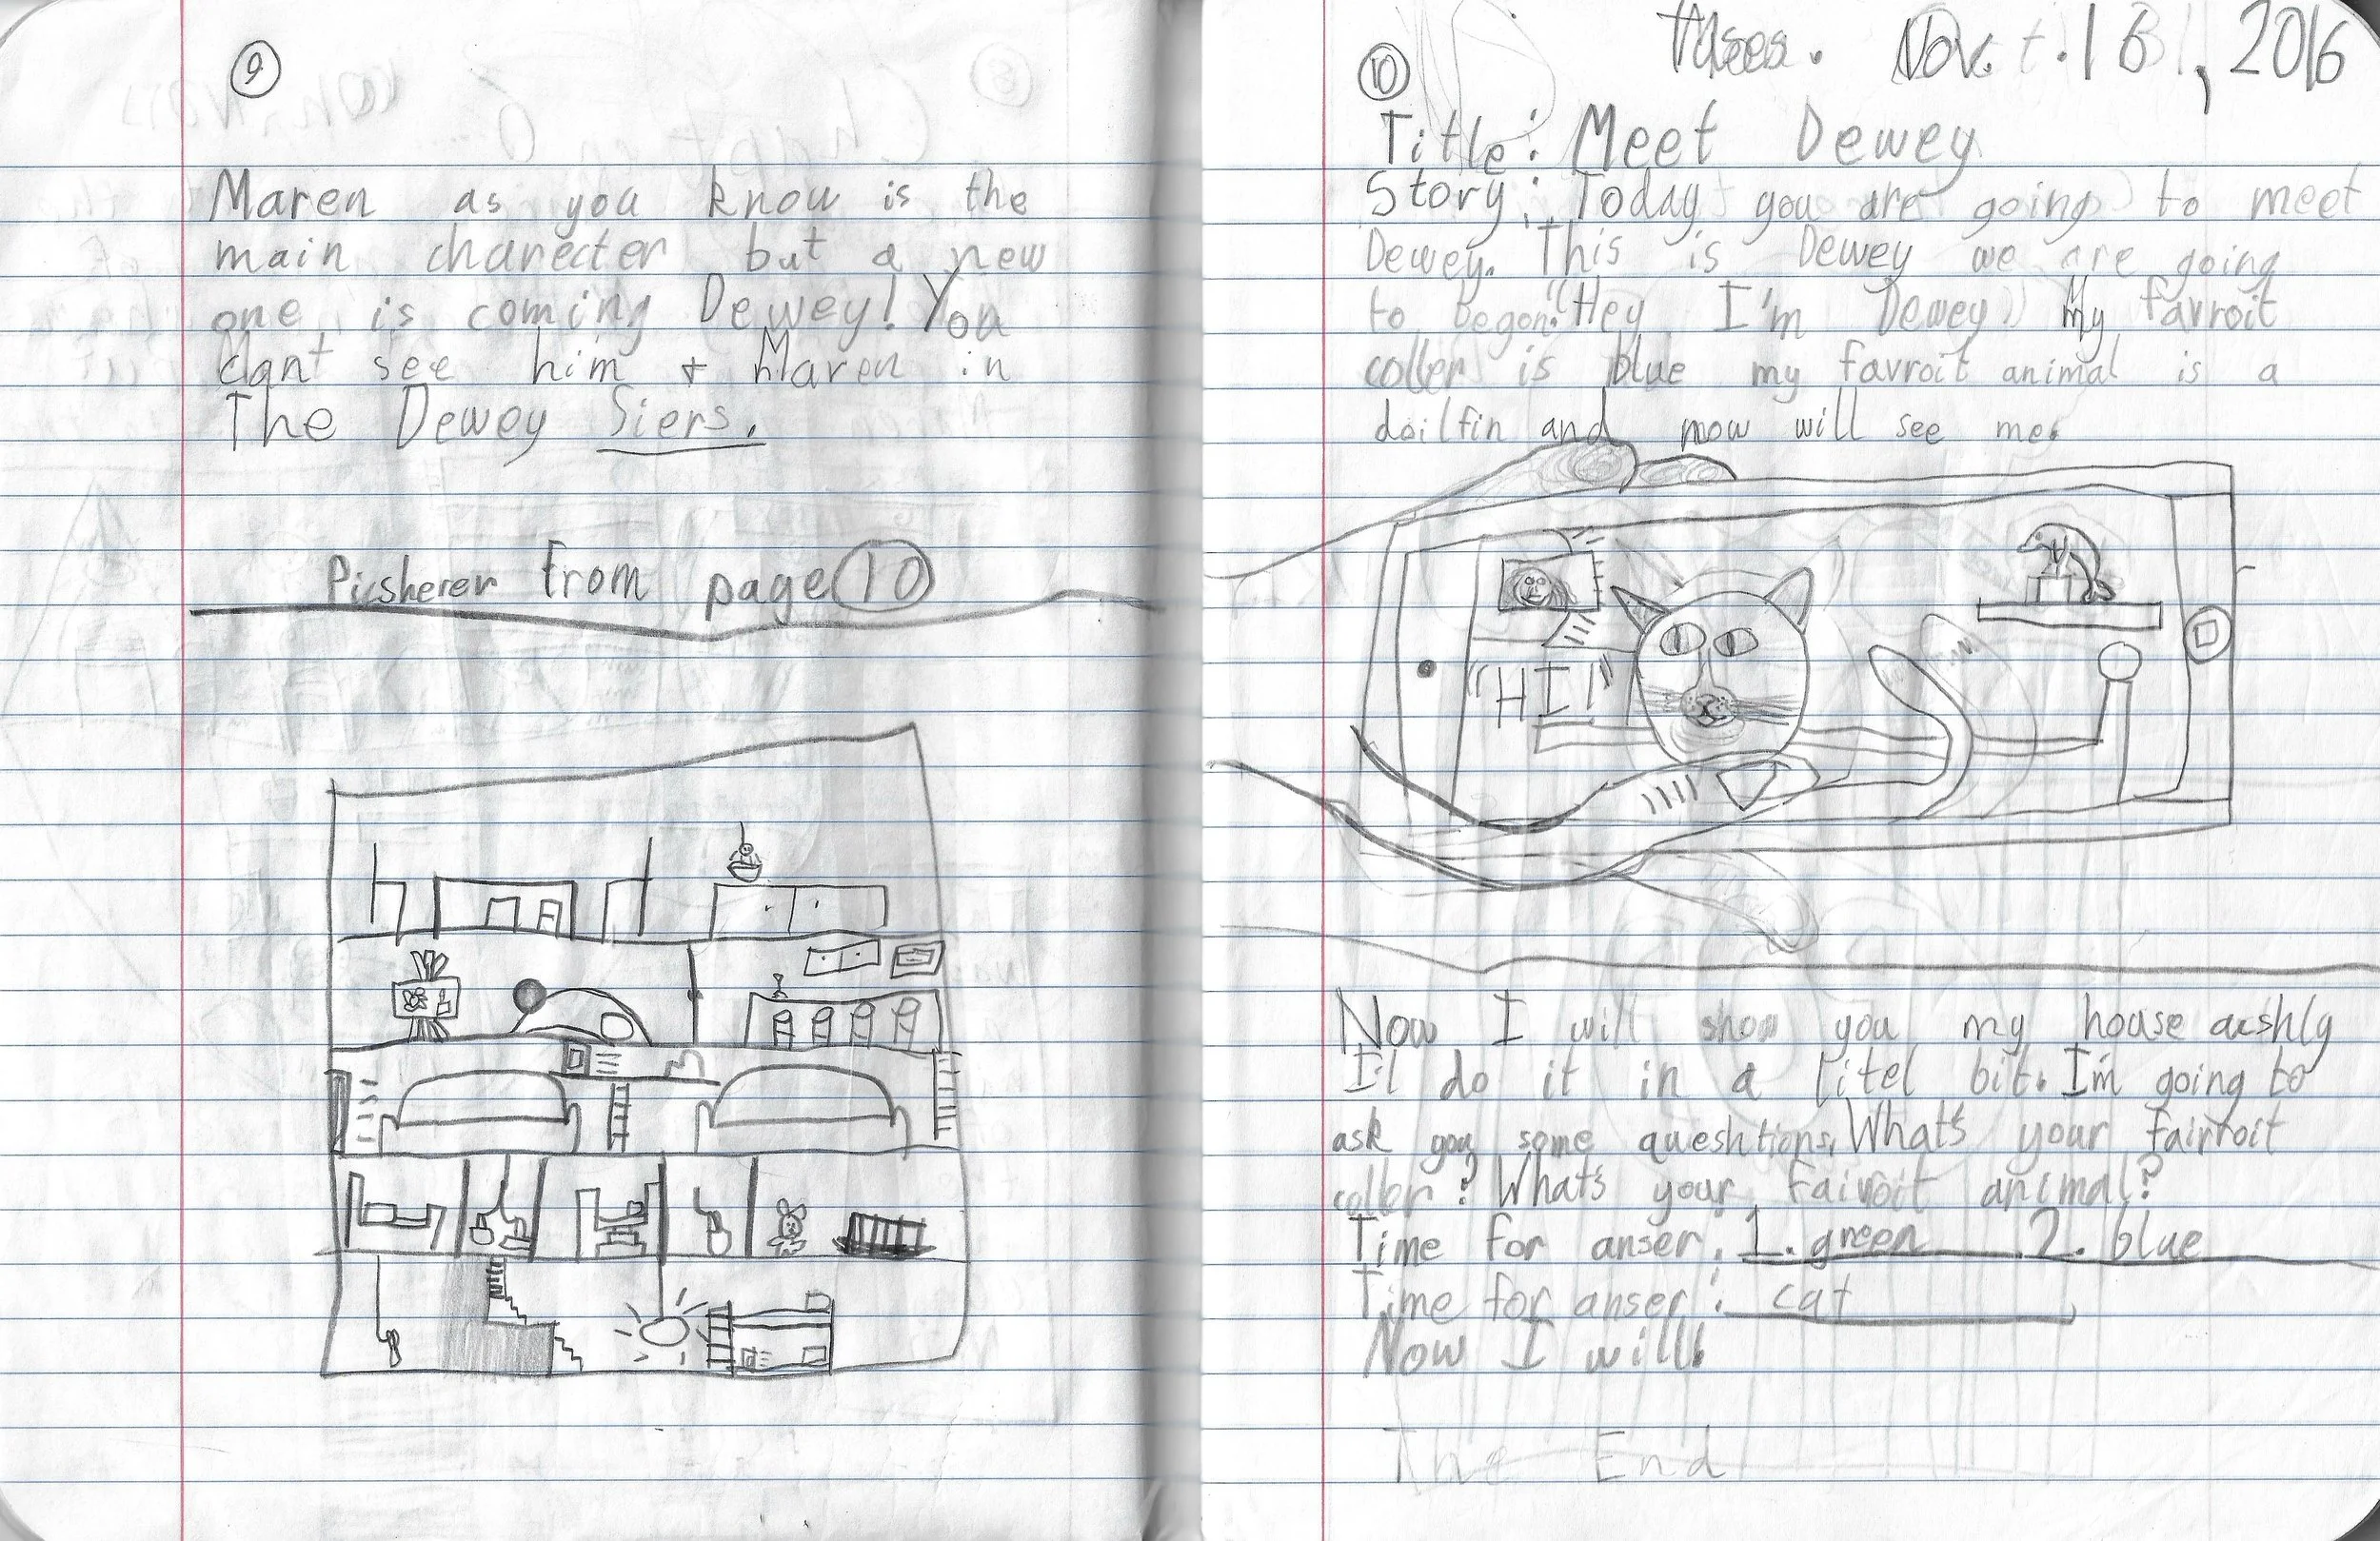 9
Maren as you know is the
main charecter but a new
one is coming Dewey! You
see him + Maren in
The Dewey Siers.
Picsherer from page 10
10
Nov. 16, 2016
Title: Meet Dewey
Story: Today you are going to meet
Dewey. This is Dewey we are going
to begon. "Hey I'm Dewey" My favroit
coller is blue my favroit animal is a
doilfin and now will see me.
"HI!"
Now I will show you my house acshly
I'l do it in a litel bit. I'm going to
ask you some queshtions. What's your fairroit
coller? What's your fairoit animal?
Time for anser: 1. green 2. blue
Time for anser: cat
Now I will!
The End